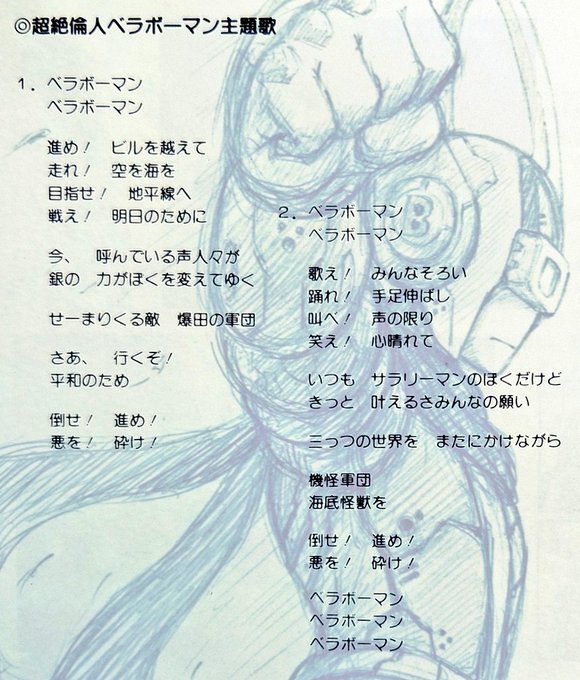 ◎超絶倫人ベラボーマン主題歌
1. ベラボーマン
ベラボーマン
進め! ビルを越えて
走れ! 空を海を
目指せ! 地平線へ
戦え! 明日のために
今、 呼んでいる声人々が
銀の 力がぼくを変えてゆく
せーまりくる敵 爆田の軍団
さあ、 行くぞ!
平和のため
倒せ! 進め!
悪を! 砕け!
2. ベラボーマン
ベラボーマン
歌え! みんなそろい
踊れ! 手足伸ばし
叫べ! 声の限り
笑え! 心晴れて
いつも サラリーマンのぼくだけど
きっと 叶えるさみんなの願い
三っつの世界を またにかけながら
機怪軍団
海底怪獣を
倒せ! 進め!
悪を! 砕け!
ベラボーマン
ベラボーマン
ベラボーマン